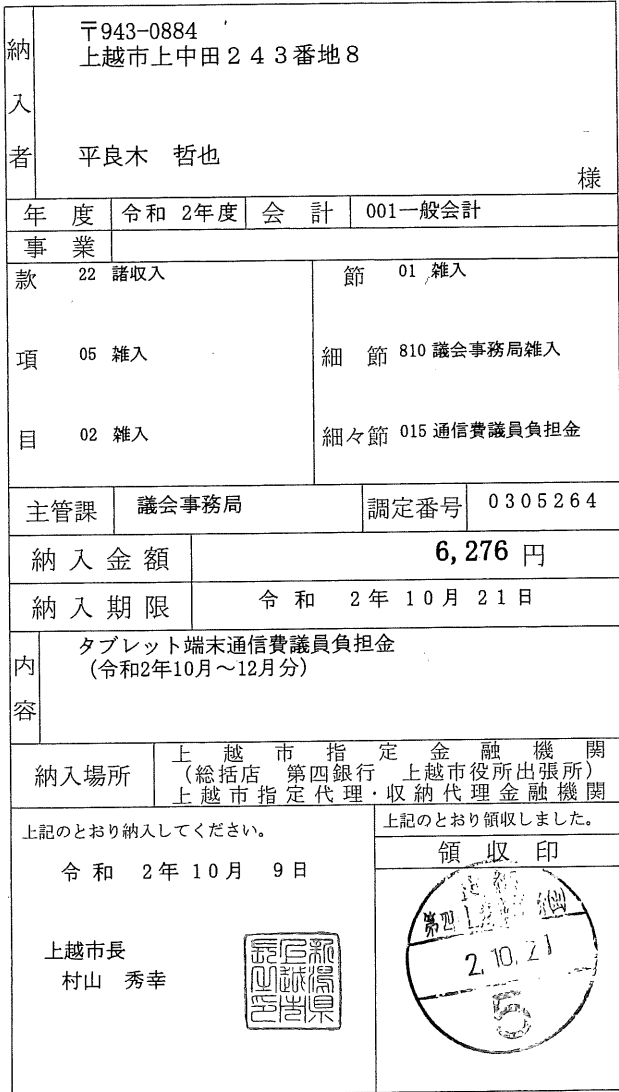 納入者
〒943-0884
上越市上中田243番地8
平良木 哲也
様
年度 令和 2年度 会計 001一般会計
事業
款 22 諸収入 節 01 雑入
項 05 雑入 細節 810 議会事務局雑入
目 02 雑入 細々節 015 通信費議員負担金
主管課 議会事務局 調定番号 0305264
納入金額 6,276 円
納入期限 令和 2年10月21日
内容
タブレット端末通信費議員負担金
(令和2年10月~12月分)
納入場所
上越市指定金融機関
(総括店 第四銀行 上越市役所出張所)
上越市指定代理・収納代理金融機関
上記のとおり納入してください。
令和 2年10月 9日
上越市長
村山 秀幸
新潟県
上越市
長之印
上記のとおり領収しました。
領収印
2.10.21
5